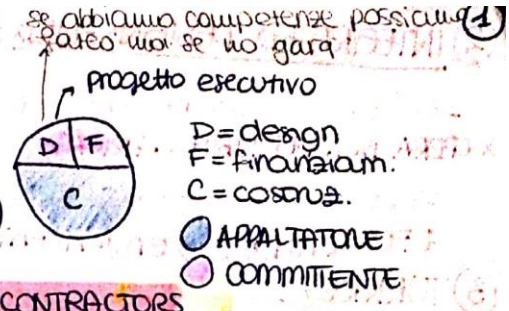 se abbiamo competenze possiamo ①
farlo noi se no gara
progetto esecutivo
D F
C
D=design
F=finanziam.
C=costruz.
APPALTATORE
COMMITTENTE
CONTRACTORS